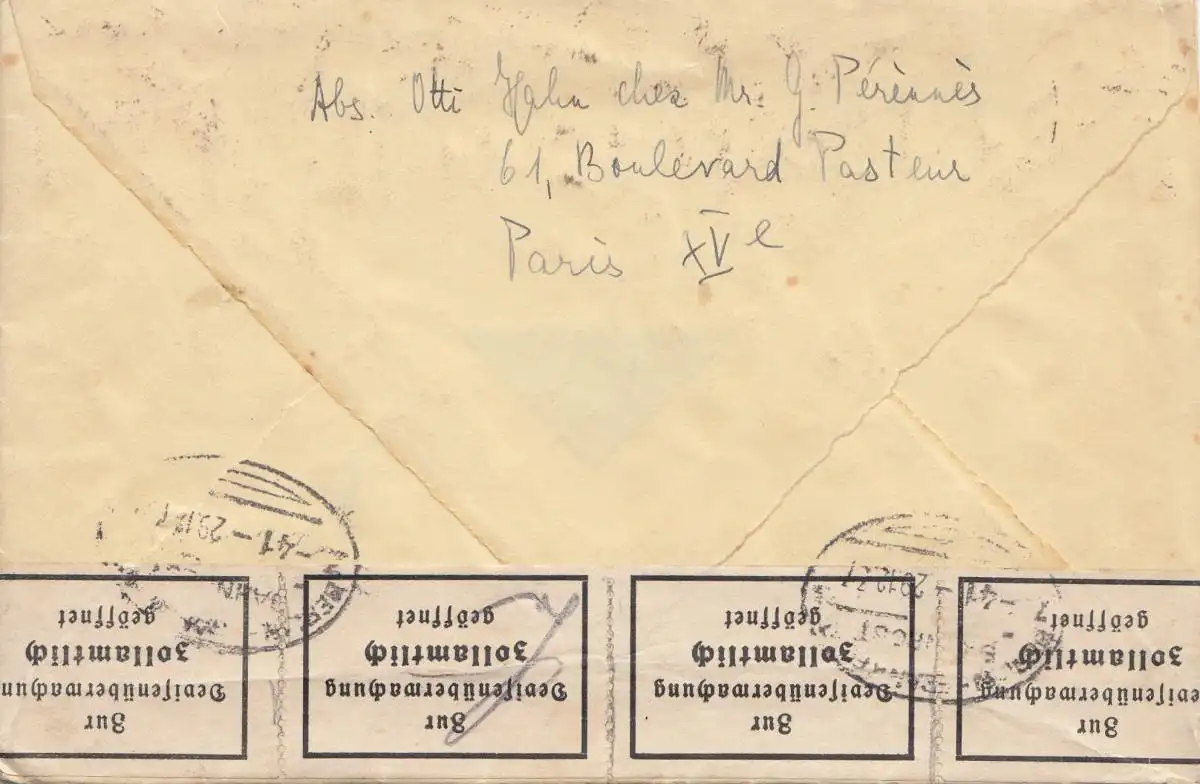 Abs. Otti Hahn chez Mr. G. Pérènnès
61, Boulevard Pasteur
Paris XVe
-41-29.12.37
29.12.37
-41-
Zur
Devisenüberwachung
zollamtlich
geöffnet
Zur
Devisenüberwachung
zollamtlich
geöffnet
Zur
Devisenüberwachung
zollamtlich
geöffnet
Zur
Devisenüberwachung
zollamtlich
geöffnet